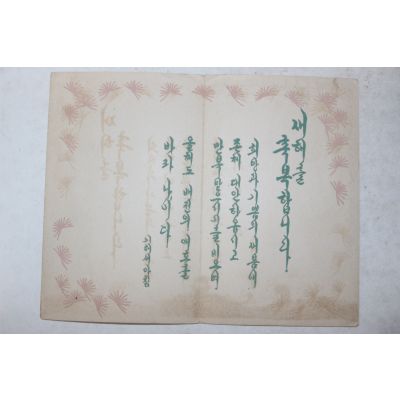 새해를
축복합니다.
희망과 기쁨의 새봄에
존체 대안하옵시고
만복 받으시기를 비오며
올해도 배전의 애호를
바라나이다